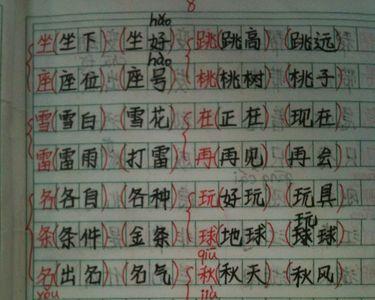 hǎo
坐(坐下)(坐好) 跳(跳高)(跳远)
hào
座(座位)(座号) 桃(桃树)(桃子)
雪(雪白)(雪花) 在(正在)(现在)
雷(雷雨)(打雷) 再(再见)(再会)
各(各自)(各种) 玩(好玩)(玩具)
玩
条(条件)(金条) 球(地球)(球球)
qiū
名(出名)(名气) 秋(秋天)(秋风)